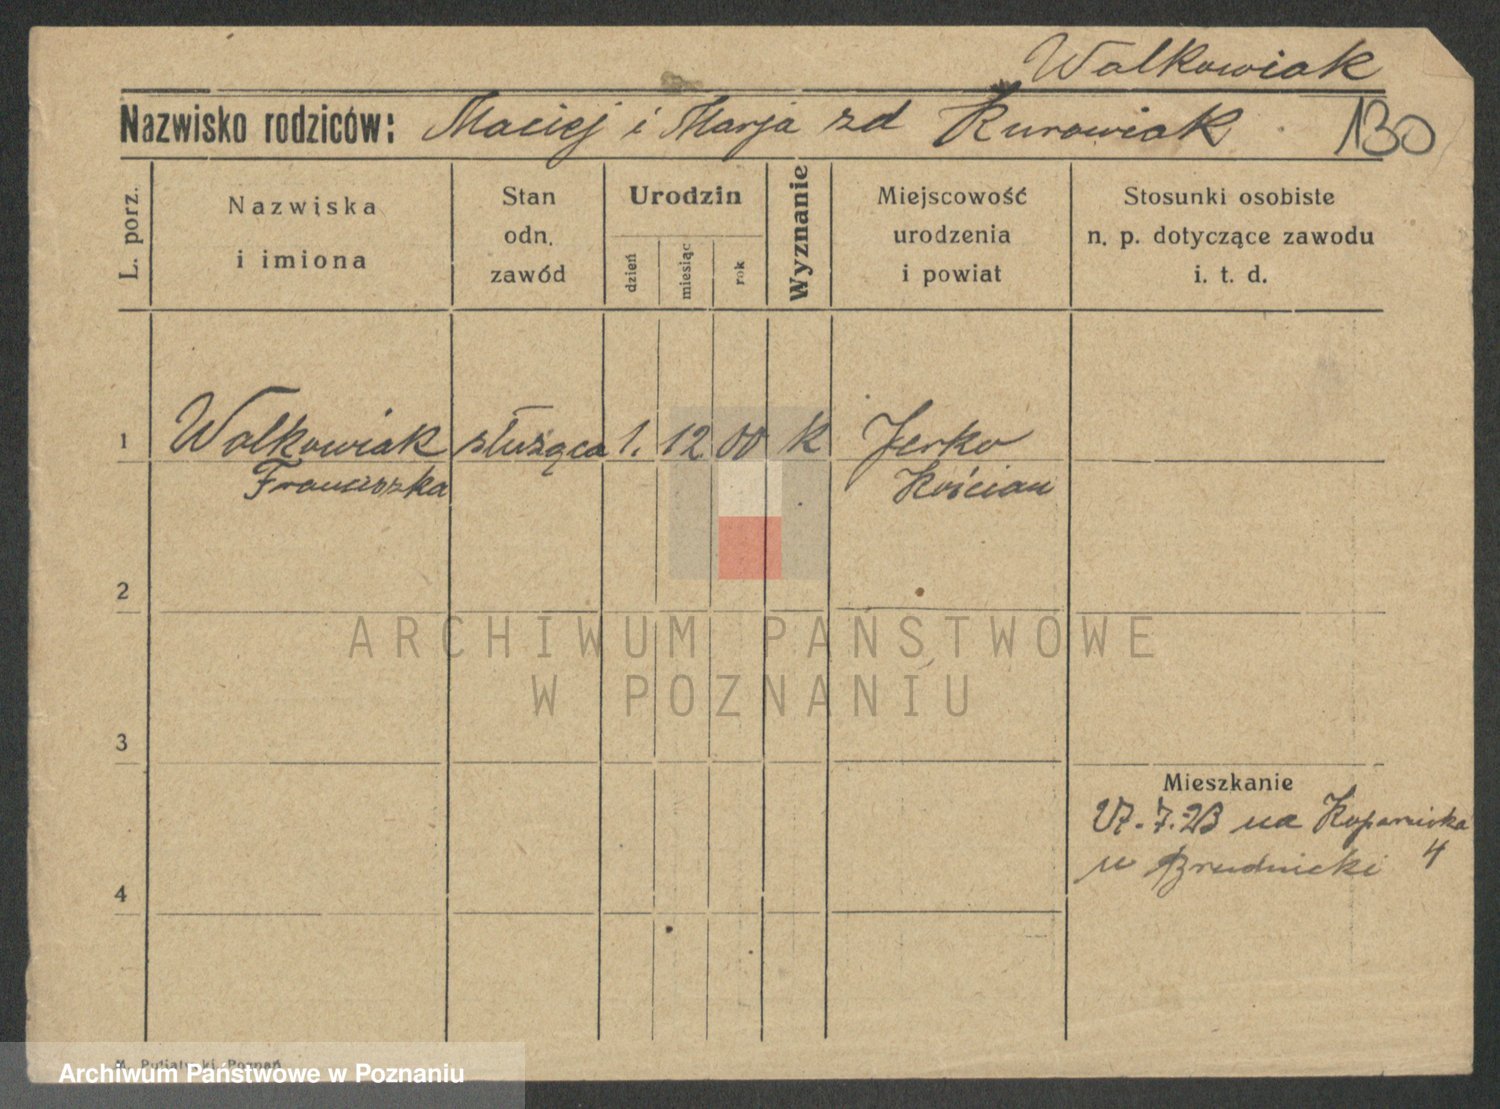 Walkowiak
Nazwisko rodziców: Maciej i Marja zd Kurowiak
130
L. porz.
Nazwiska
i imiona
Stan
odn.
zawód
Urodzin
dzień
miesiąc
rok
Wyznanie
Miejscowość
urodzenia
i powiat
Stosunki osobiste
n. p. dotyczące zawodu
i. t. d.
1 Walkowiak służąca 1. 12 00 k Jerko
Franciszka Kościan
2
ARCHIWUM PAŃSTWOWE
W POZNANIU
3
Mieszkanie
7.23 na
4
w Brudnicki
4
Poznań
Archiwum Państwowe w Poznaniu